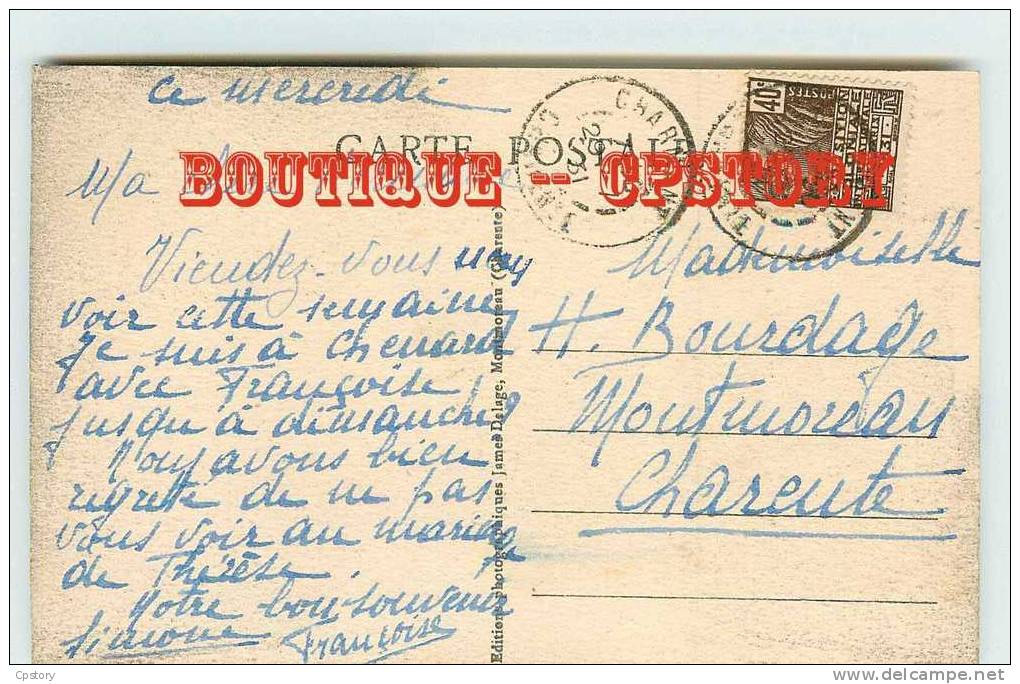 ce mercredi
CARTE POSTALE
BOUTIQUE -- CPSTORY
Ma
Viendez-vous nous
voir cette semaine
Je suis à Chenard
avec Françoise
jusqu'à dimanche
Nous avons bien
regreté de ne pas
vous voir au mariage
de Thérèse.
Notre bon souvenir
Simone Françoise
Editions photographiques James Delage, Montmoreau (Charente)
CHARENT
40c
POSTES
Mademoiselle
H. Bourdage
Montmoreau
Charente
Cpstory
www.delcampe.net